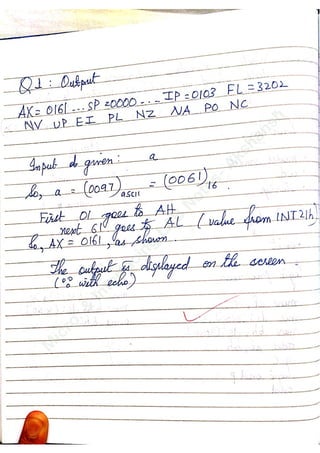 Q1: Output
AX= 0161 ... SP =0000 ... IP =0103 FL = 3202
NV UP EI PL NZ NA PO NC
Input given: a
So, a = (0097)ASCII = (0061)16.
First 01 goes to AH
next 61 goes to AL (value from INT21h)
So, AX = 0161, as shown.
The output is displayed on the screen.
(∵ with echo)